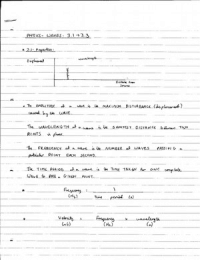 PHYSICS: WAVES: 3.1 → 3.3
• 3.1: Properties:
Displacement
wavelength
Distance from
source
• The AMPLITUDE of a wave is the MAXIMUM DISTURBANCE (displacement)
caused by the WAVE.
The WAVELENGTH of a wave is the SHORTEST DISTANCE between TWO
POINTS in phase.
The FREQUENCY of a wave is the NUMBER of WAVES PASSING a
particular POINT EACH SECOND.
The TIME PERIOD of a wave is the TIME TAKEN for ONE complete
WAVE to PASS a GIVEN POINT.
• Frequency = 1
(Hz) time period (s)
• Velocity = Frequency × wavelength
(m/s) (Hz)